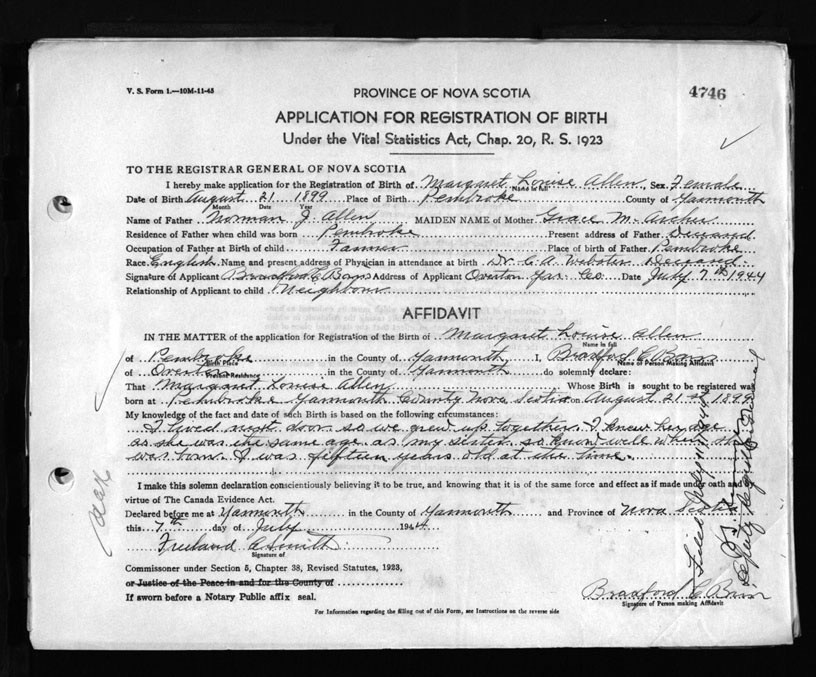 V. S. Form 1.—10M-11-43
PROVINCE OF NOVA SCOTIA
4746
APPLICATION FOR REGISTRATION OF BIRTH
Under the Vital Statistics Act, Chap. 20, R. S. 1923
TO THE REGISTRAR GENERAL OF NOVA SCOTIA
I hereby make application for the Registration of Birth of Margaret Louise Allen, Sex, Female
Name in full
Date of Birth August 21 1899 Place of Birth Pembroke County of Yarmouth
Month Date Year
Name of Father Norman J. Allen MAIDEN NAME of Mother Grace M.
Residence of Father when child was born Pembroke Present address of Father Deceased
Occupation of Father at Birth of child Farmer Place of birth of Father Pembroke
Race, English Name and present address of Physician in attendance at birth Dr. C. A. Webster Deceased
Signature of Applicant Bradford C. Address of Applicant Overton Yar. Co. Date July 7th 1944
Relationship of Applicant to child Neighbour
AFFIDAVIT
IN THE MATTER of the application for Registration of the Birth of Margaret Louise Allen
Name in full
of Pembroke in the County of Yarmouth I, Bradford C
Birth Place Name of Person Making Affidavit
of Overton in the County of Yarmouth do solemnly declare:
Present Residence
That Margaret Louise Allen Whose Birth is sought to be registered was
born at Pembroke Yarmouth County Nova Scotia on August 21st 1899
My knowledge of the fact and date of such Birth is based on the following circumstances:
I lived next door so we grew up together. I knew her age
as she was the same age as my sister so know well when she
was born. I was fifteen years old at the time.
I make this solemn declaration conscientiously believing it to be true, and knowing that it is of the same force and effect as if made under oath and by
virtue of The Canada Evidence Act.
Declared before me at Yarmouth in the County of Yarmouth and Province of Nova Scotia
this 7th day of July 1944
Freeland A Smith
Signature of
Commissioner under Section 5, Chapter 38, Revised Statutes, 1923,
or Justice of the Peace in and for the County of
If sworn before a Notary Public affix seal.
Bradford C
Signature of Person making Affidavit
For Information regarding the filling out of this Form, see Instructions on the reverse side
Filed July 11 1944
Deputy Registrar General